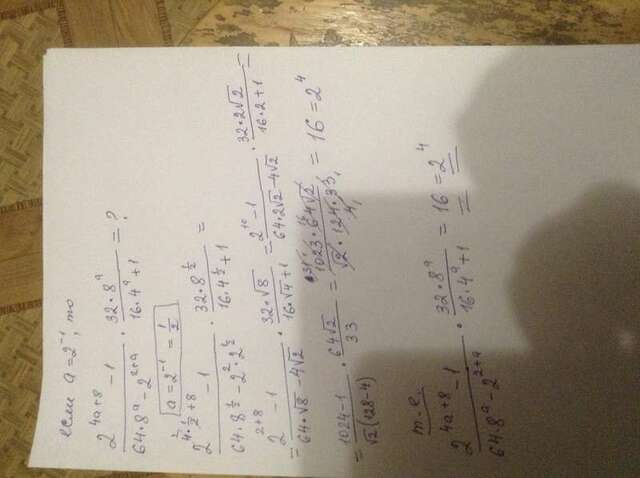 если a = 2⁻¹, то
(2^(4a+8) - 1)/(64·8^a - 2^(2+a)) · (32·8^a)/(16·4^a+1) = ?
a = 2⁻¹ = 1/2
(2^(4·1/2+8) - 1)/(64·8^(1/2) - 2²·2^(1/2)) · (32·8^(1/2))/(16·4^(1/2)+1) =
= (2^(2+8) - 1)/(64·√8 - 4√2) · (32·√8)/(16·√4+1) = (2^10 - 1)/(64·2√2 - 4√2) · (32·2√2)/(16·2+1) =
= (1024-1)/(√2(128-4)) · (64√2)/33 = (1023·64√2)/(√2·124·33) = 16 = 2⁴
т.е.
(2^(4a+8) - 1)/(64·8^a - 2^(2+a)) · (32·8^a)/(16·4^a+1) = 16 = 2⁴